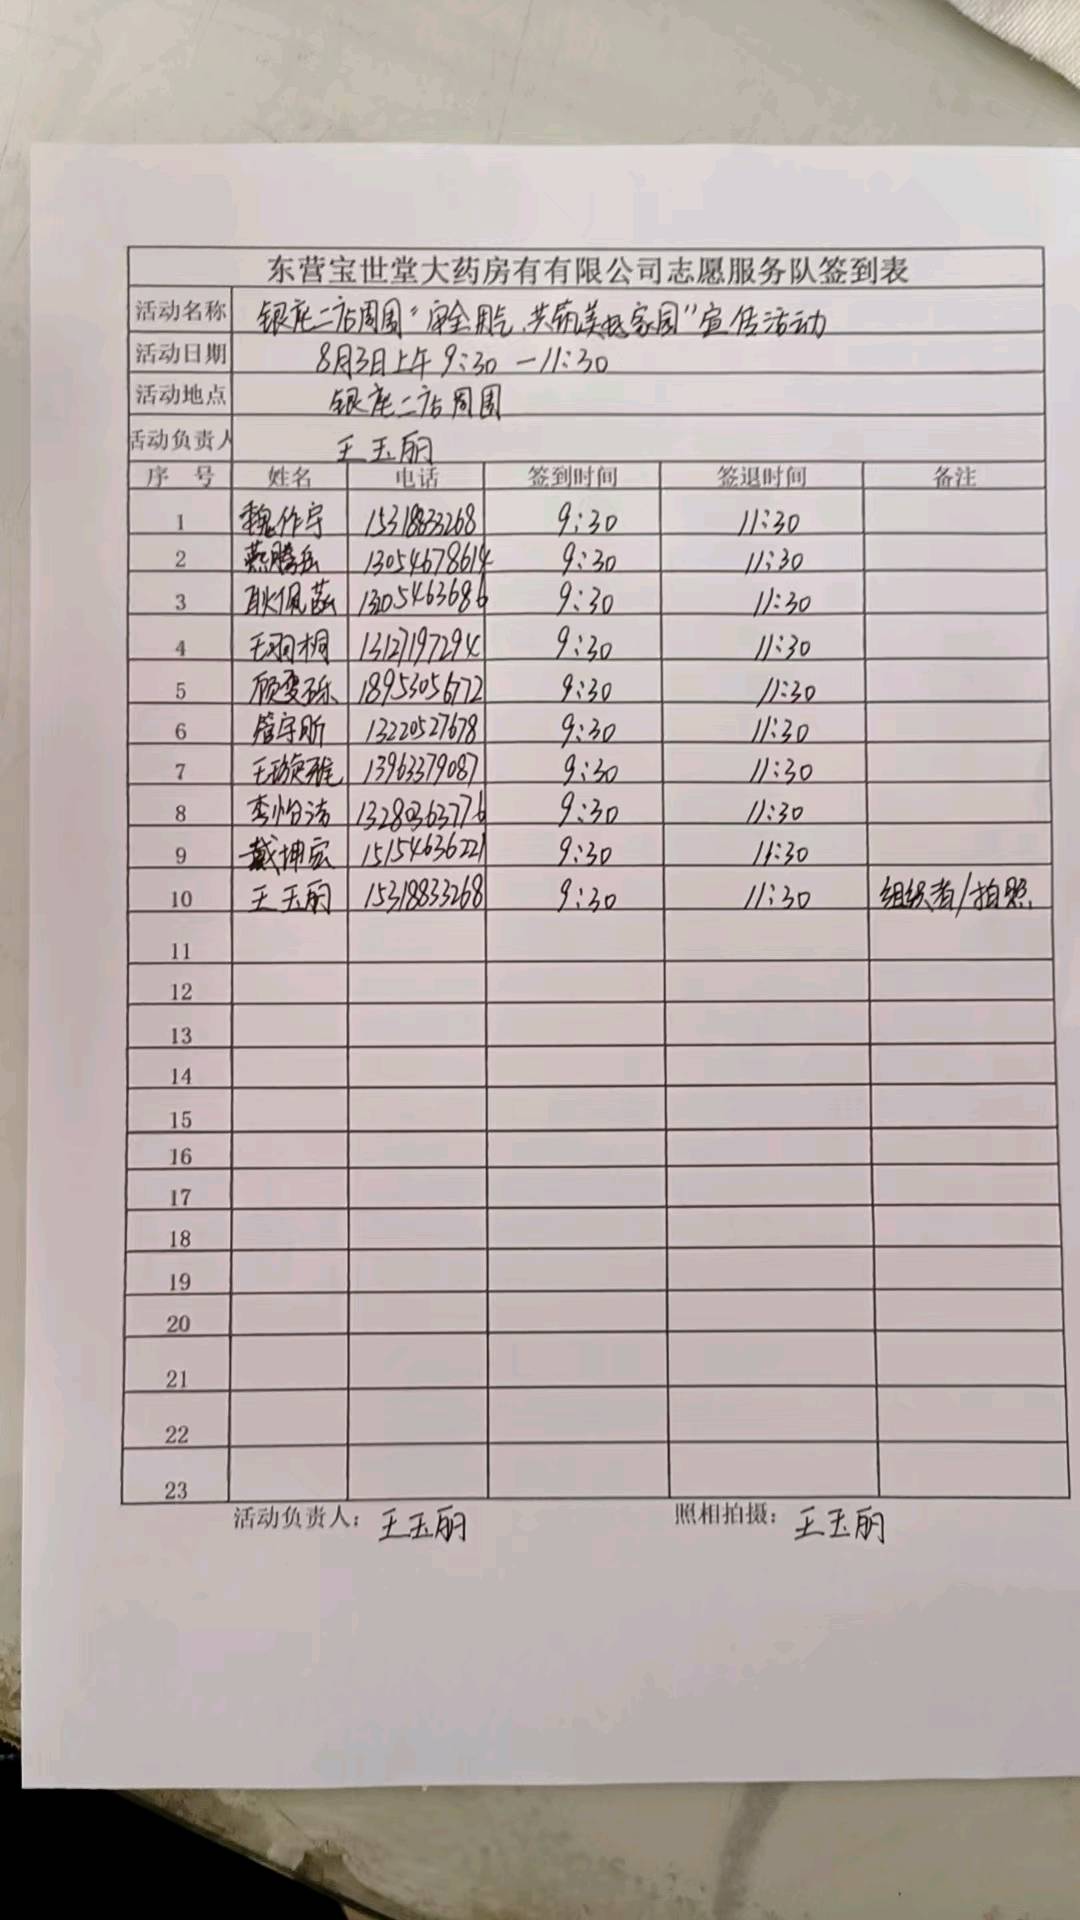 东营宝世堂大药房有有限公司志愿服务队签到表
活动名称 银座二店周围“安全用气 共筑美好家园”宣传活动
活动日期 8月3日上午9:30－11:30
活动地点 银座二店周围
活动负责人 王玉丽
序 号 姓名 电话 签到时间 签退时间 备注
1 魏作宇 15318833268 9:30 11:30
2 燕腾岳 13054678614 9:30 11:30
3 耿佩菡 1305463686 9:30 11:30
4 王羽桐 13127197294 9:30 11:30
5 18953056772 9:30 11:30
6 管宇昕 13220527678 9:30 11:30
7 王璇雅 13963379087 9:30 11:30
8 李怡洁 13280363776 9:30 11:30
9 戴坤宏 15154636221 9:30 11:30
10 王玉丽 15318833268 9:30 11:30 组织者/拍照
11
12
13
14
15
16
17
18
19
20
21
22
23
活动负责人： 王玉丽 照相拍摄： 王玉丽